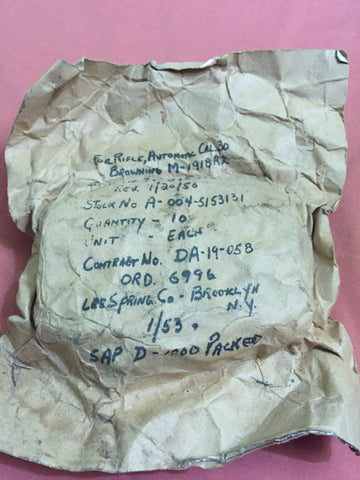 FOR RIFLE, AUTOMATIC CAL 30
BROWNING M-1918A2
REV. 1/20/50
STOCK NO A-004-5153131
QUANTITY - 10
UNIT - EACH
CONTRACT NO. DA-19-058
ORD. 6996
LEE SPRING CO - BROOKLYN
N.Y.
1/53.
SAP D- PACKED